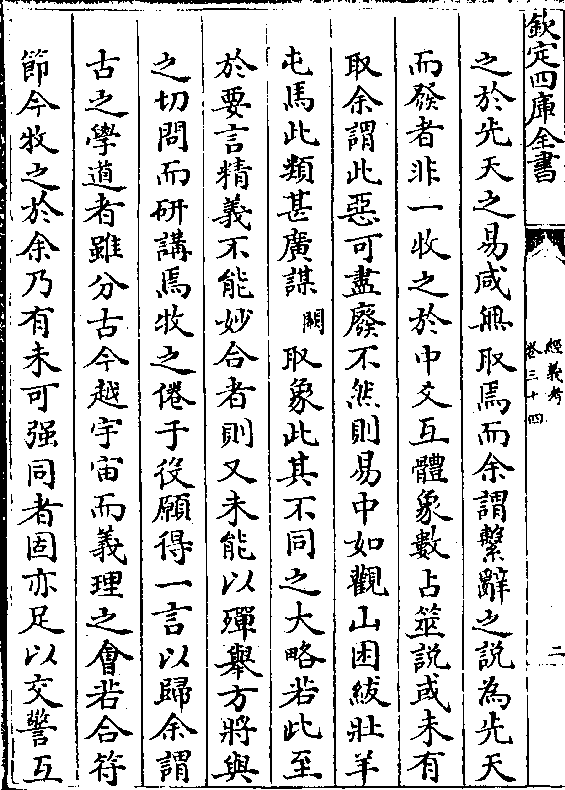 欽定四庫全書
經義考
卷三十四
二
之於先天之易咸無取焉而余謂繫辭之說為先天
而發者非一收之於中爻互體象數占筮說或未有
取余謂此惡可盡廢不然則易中如觀山困紱壯羊
屯馬此類甚廣謀闕取象此其不同之大略若此至
於要言精義不能妙合者則又未能以殫舉方將與
之切問而研講焉牧之倦于役願得一言以歸余謂
古之學道者雖分古今越宇宙而義理之會若合符
節今牧之於余乃有未可强同者固亦足以交警互